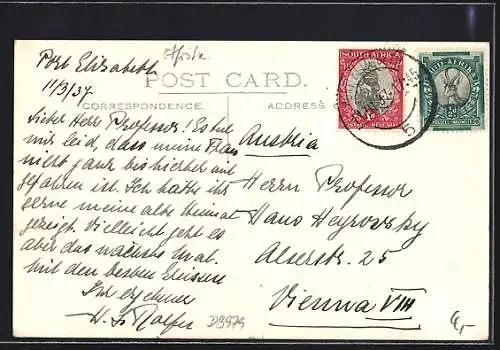 Afrika
Port Elizabeth
11/3/37
POST CARD.
CORRESPONDENCE.
ADDRESS
SOUTH AFRICA
SUID-AFRIKA
5
Lieber Herr Professor. Es tut
mir leid, dass meine Frau
nicht ganz bis hierher mit
gefahren ist. Ich hätte ihr
gerne meine alte Heimat
gezeigt. Vielleicht geht es
aber das nächste Mal.
Mit den besten Grüssen
Ihr ergebener
Austria
Herrn Professor
Hans Heyrovsky
Alserstr. 25
Vienna VIII
D9979
4,-